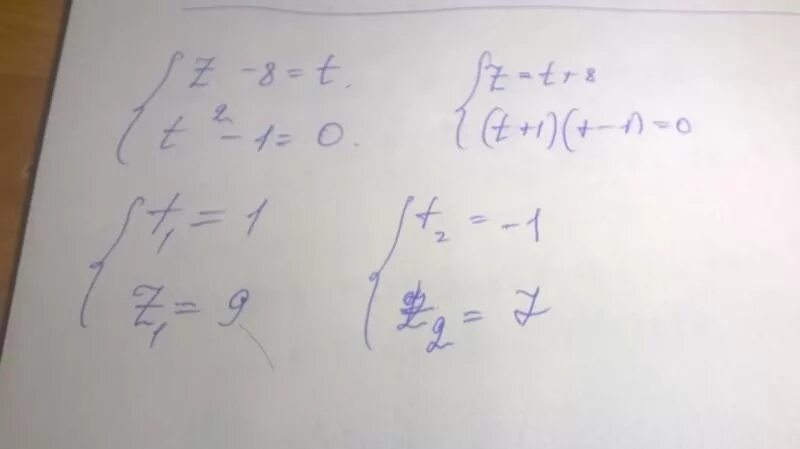 { z - 8 = t.
t² - 1 = 0.
{ z = t + 8
(t+1)(t-1) = 0
{ t₁ = 1
z₁ = 9
{ t₂ = -1
z₂ = 7